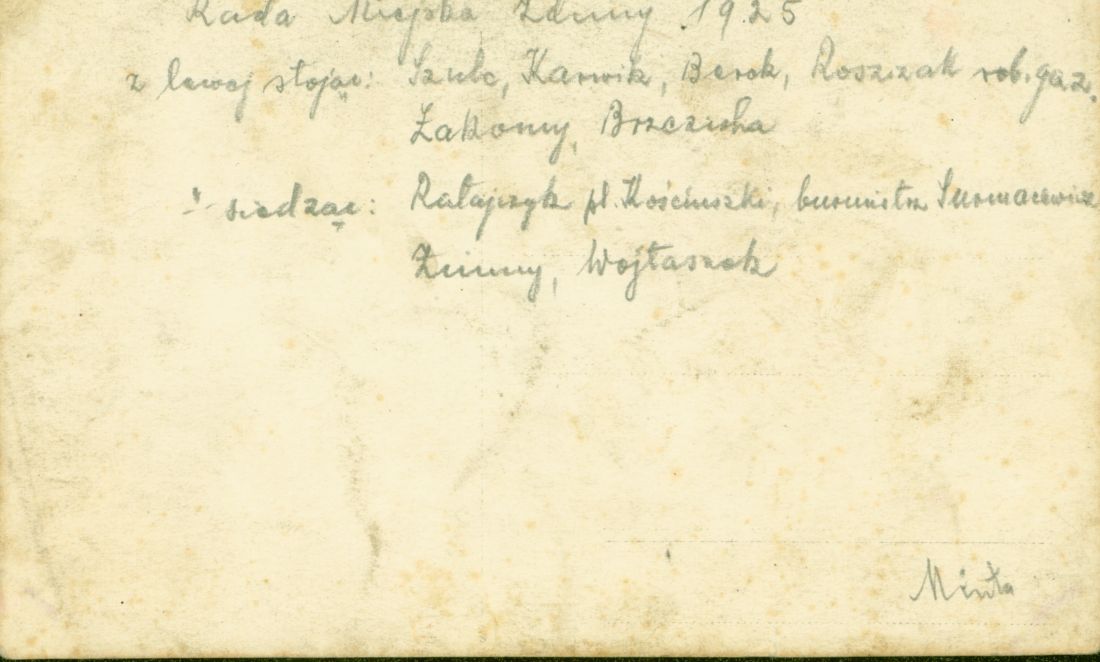 Rada Miejska Zduny 1925
z lewej stojąc: Szulc, Karwik, Berek, Roszczak rob. gaz.
Łakomy, Brzezicha
" siedząc: Ratajczyk pl. Kościuszki, burmistrz Surmacewicz
Zimny, Wojtaszek